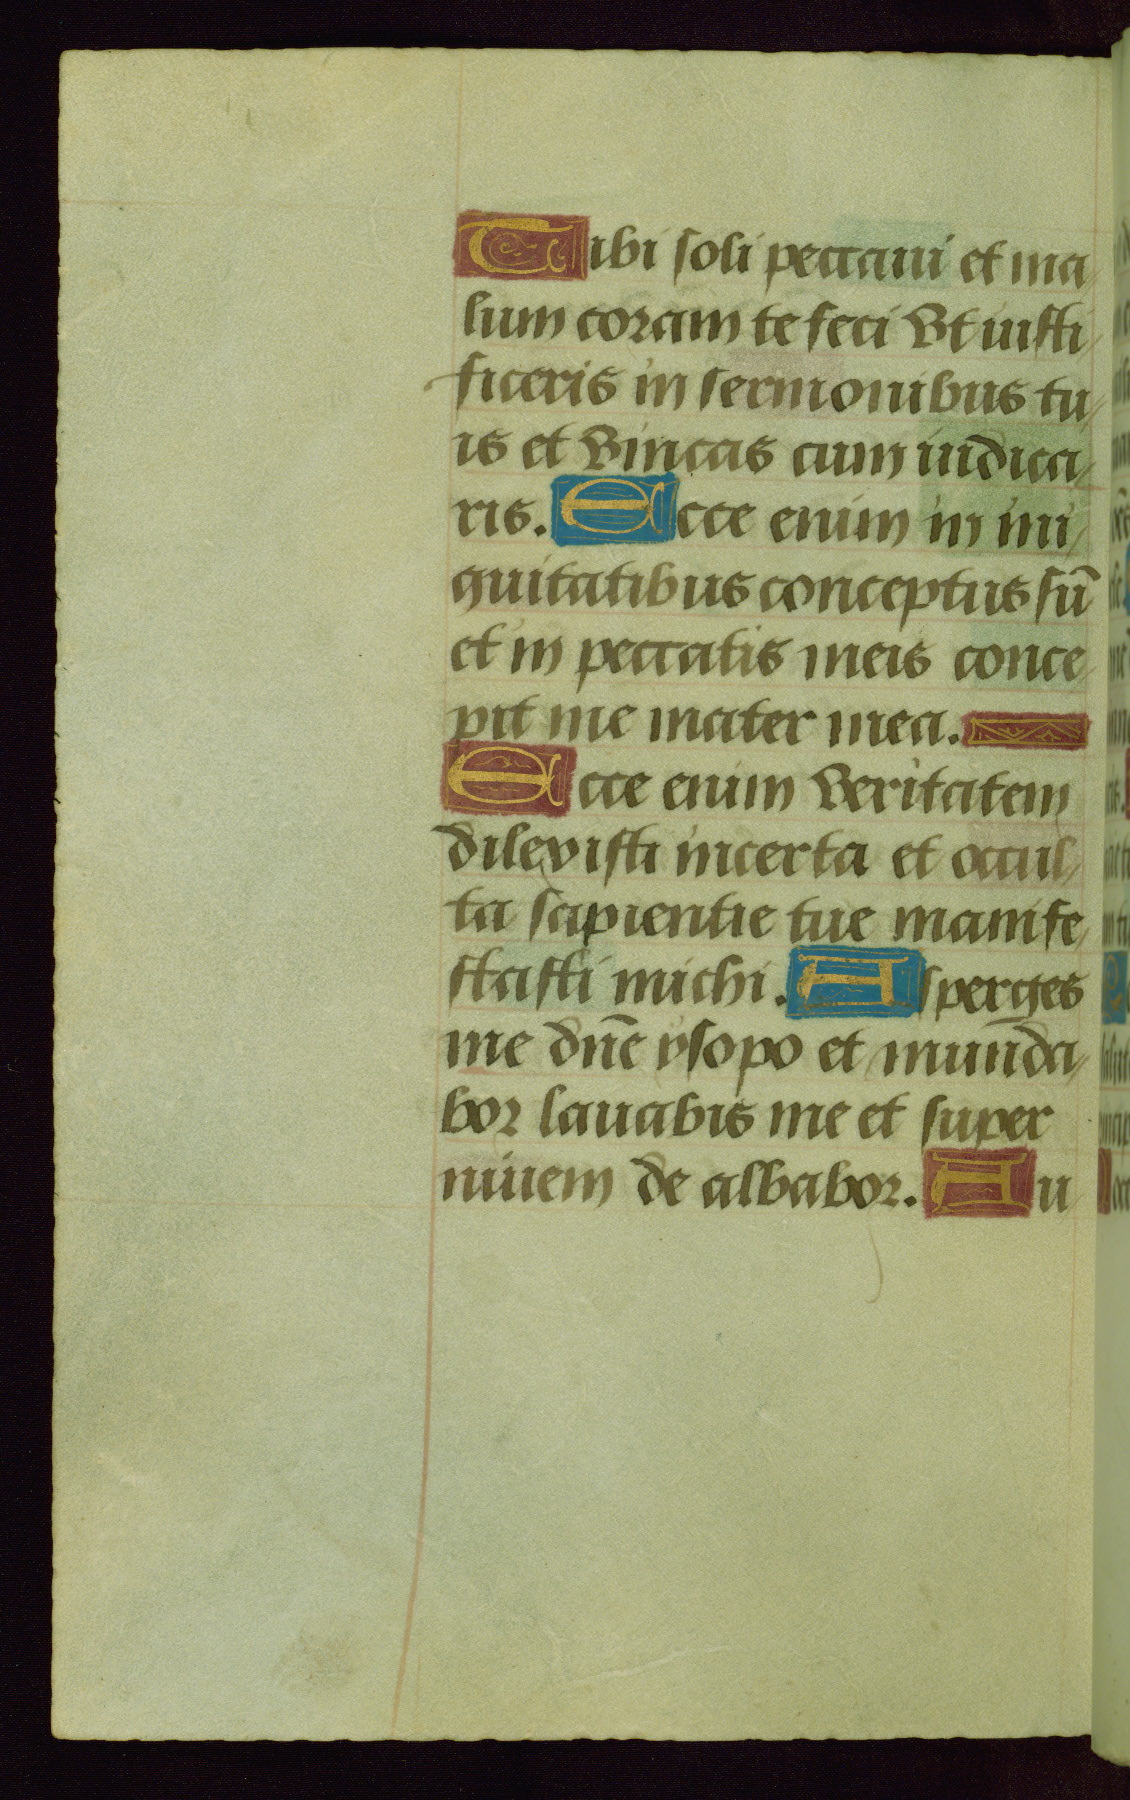 Tibi soli peccaui et ma
lum coram te feci Vt iusti
ficeris in sermonibus tu
is et vincas cum iudica
ris. Ecce enim in ini
quitatibus conceptus sū
et in peccatis meis conce
pit me mater mea.
Ecce enim veritatem
dilexisti incerta et occul
ta sapientie tue manife
stasti michi. Asperges
me dn̄e ysopo et munda
bor lauabis me et super
niuem de albabor. Au